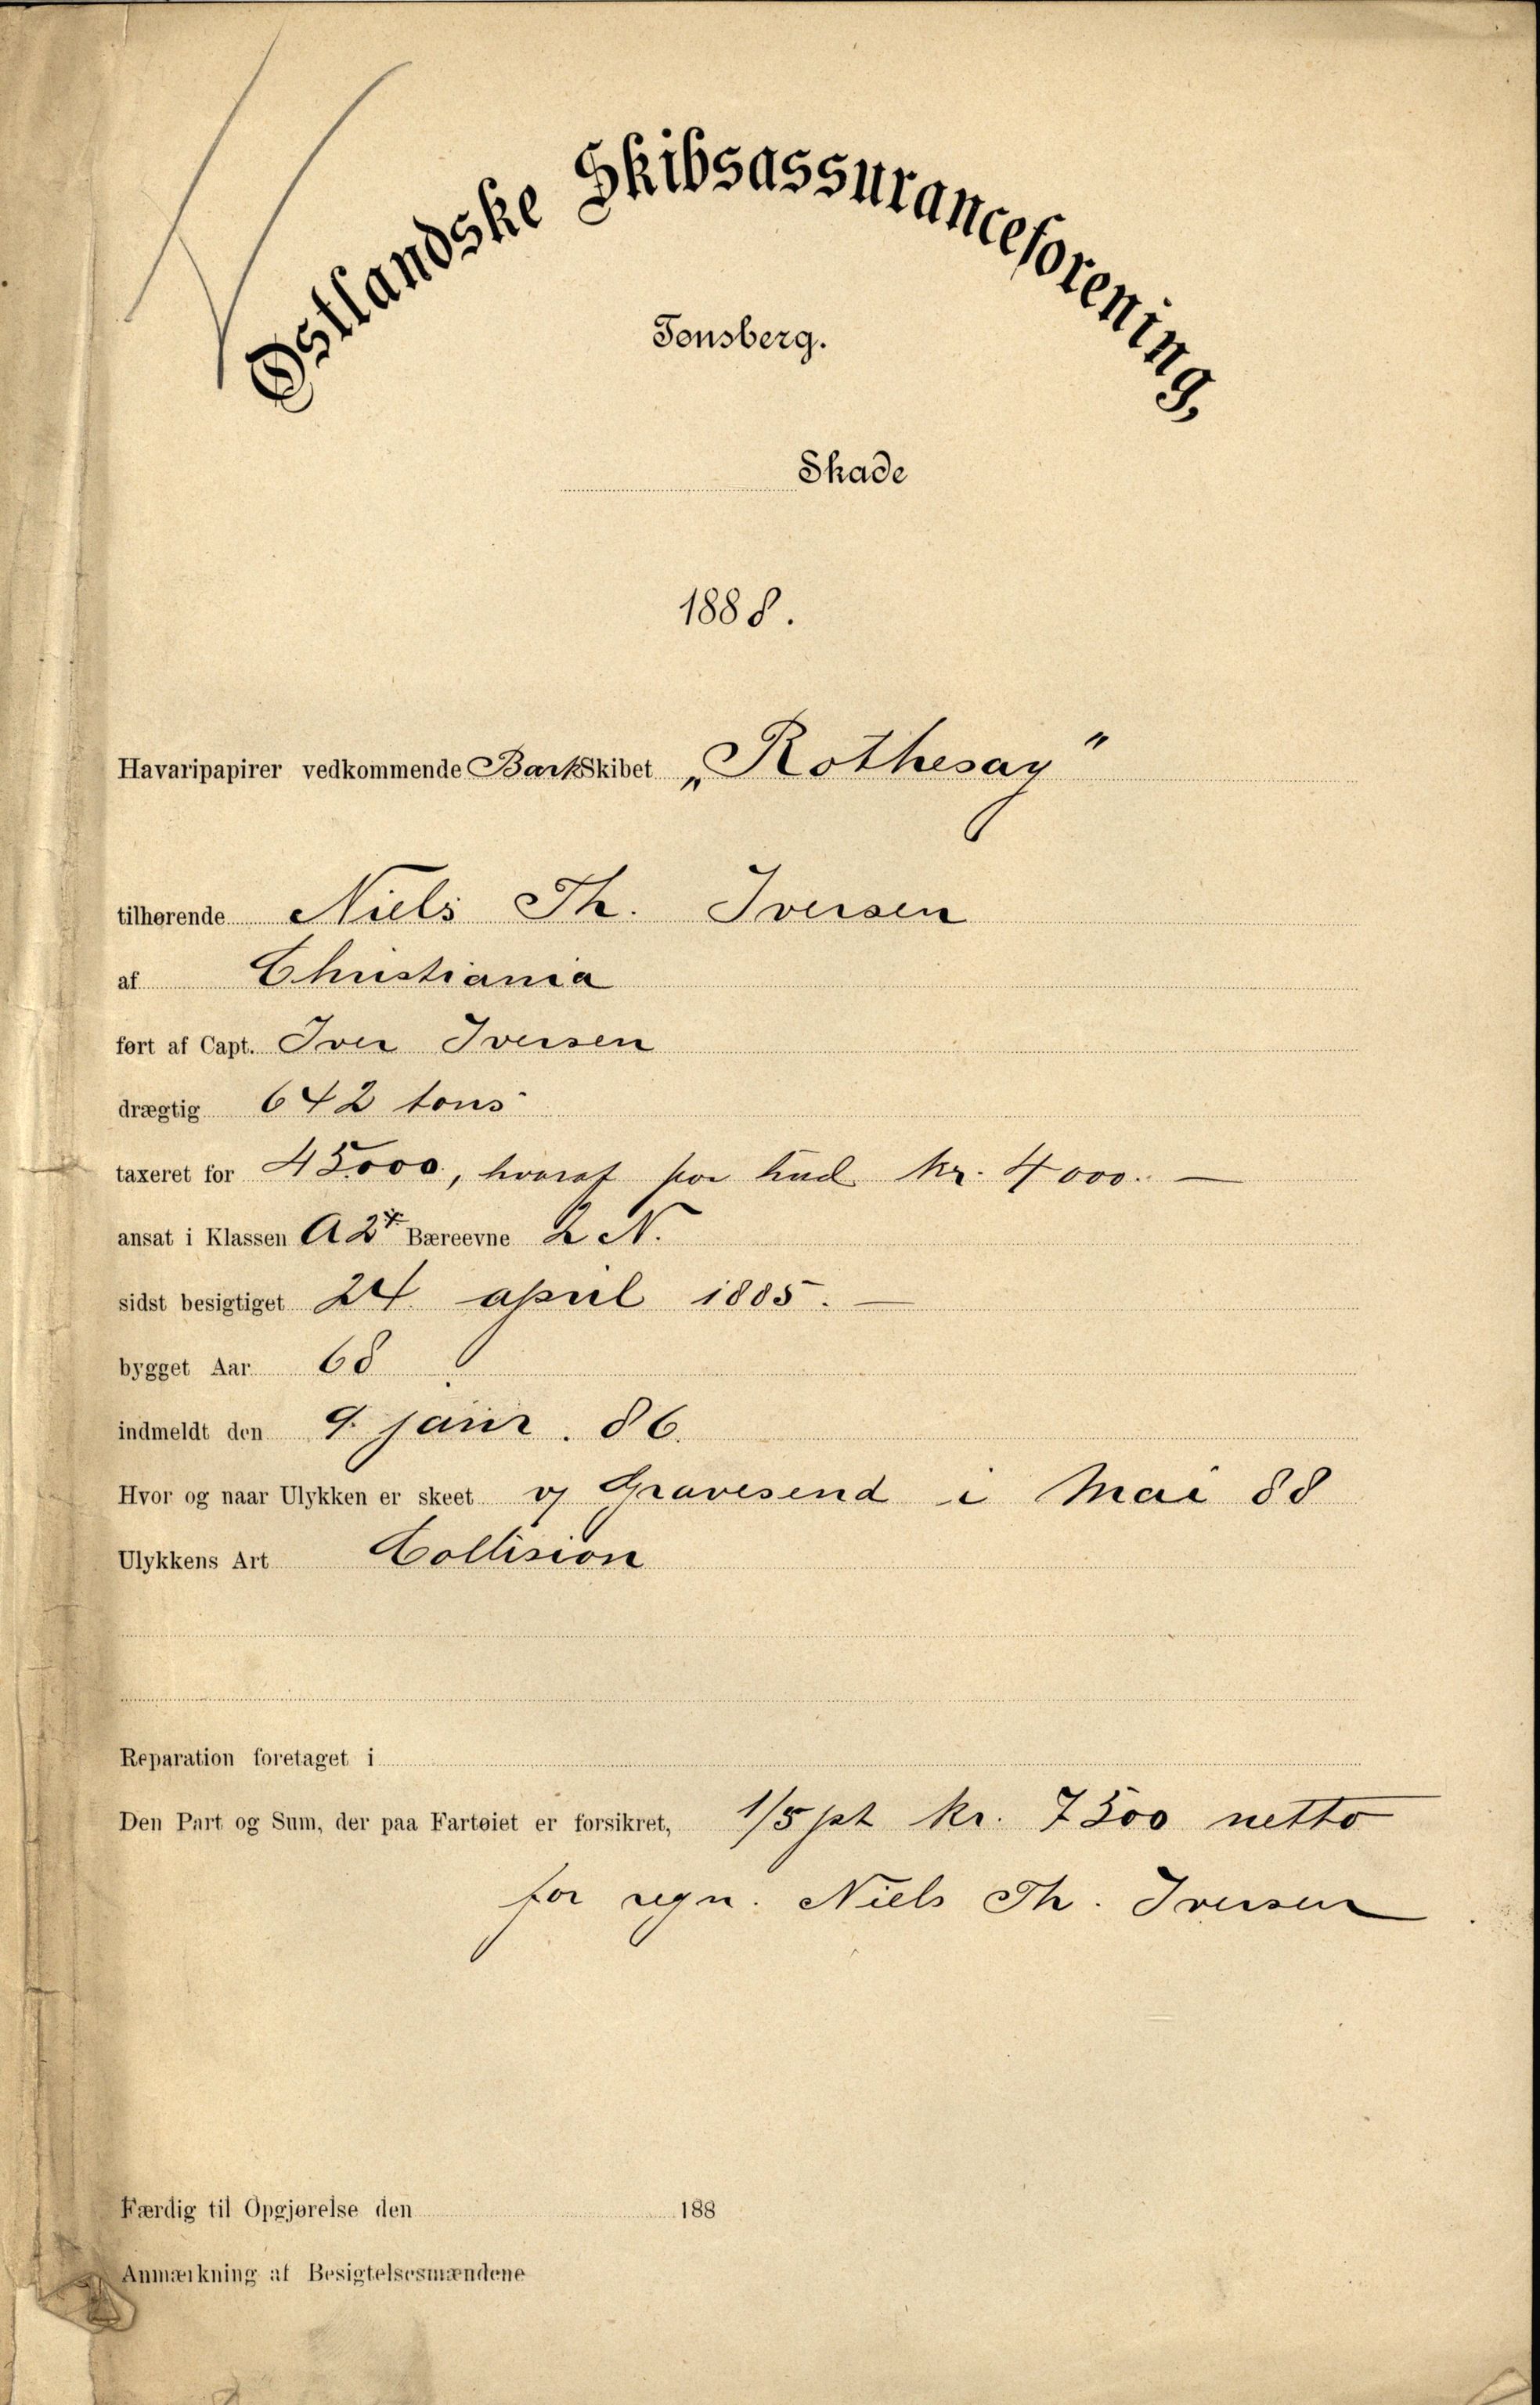 Østlandske Skibsassuranceforening,
Tønsberg.
Skade
1888.
Havaripapirer vedkommende Bark Skibet „Rothesay"
tilhørende Niels Th. Iversen
af Christiania
ført af Capt. Iver Iversen
drægtig 642 tons
taxeret for 45.000, hvoraf for hud kr. 4000. —
ansat i Klassen A2 Bæreevne 2 N.
sidst besigtiget 24 april 1885. —
bygget Aar 68
indmeldt den 9. janr. 86.
Hvor og naar Ulykken er skeet v/ Gravesend i Mai 88
Ulykkens Art Collision
Reparation foretaget i
Den Part og Sum, der paa Fartøiet er forsikret, 1/5 pt kr. 7500 netto
for regn. Niels Th. Iversen
Færdig til Opgjørelse den 188
Anmærkning af Besigtelsesmændene